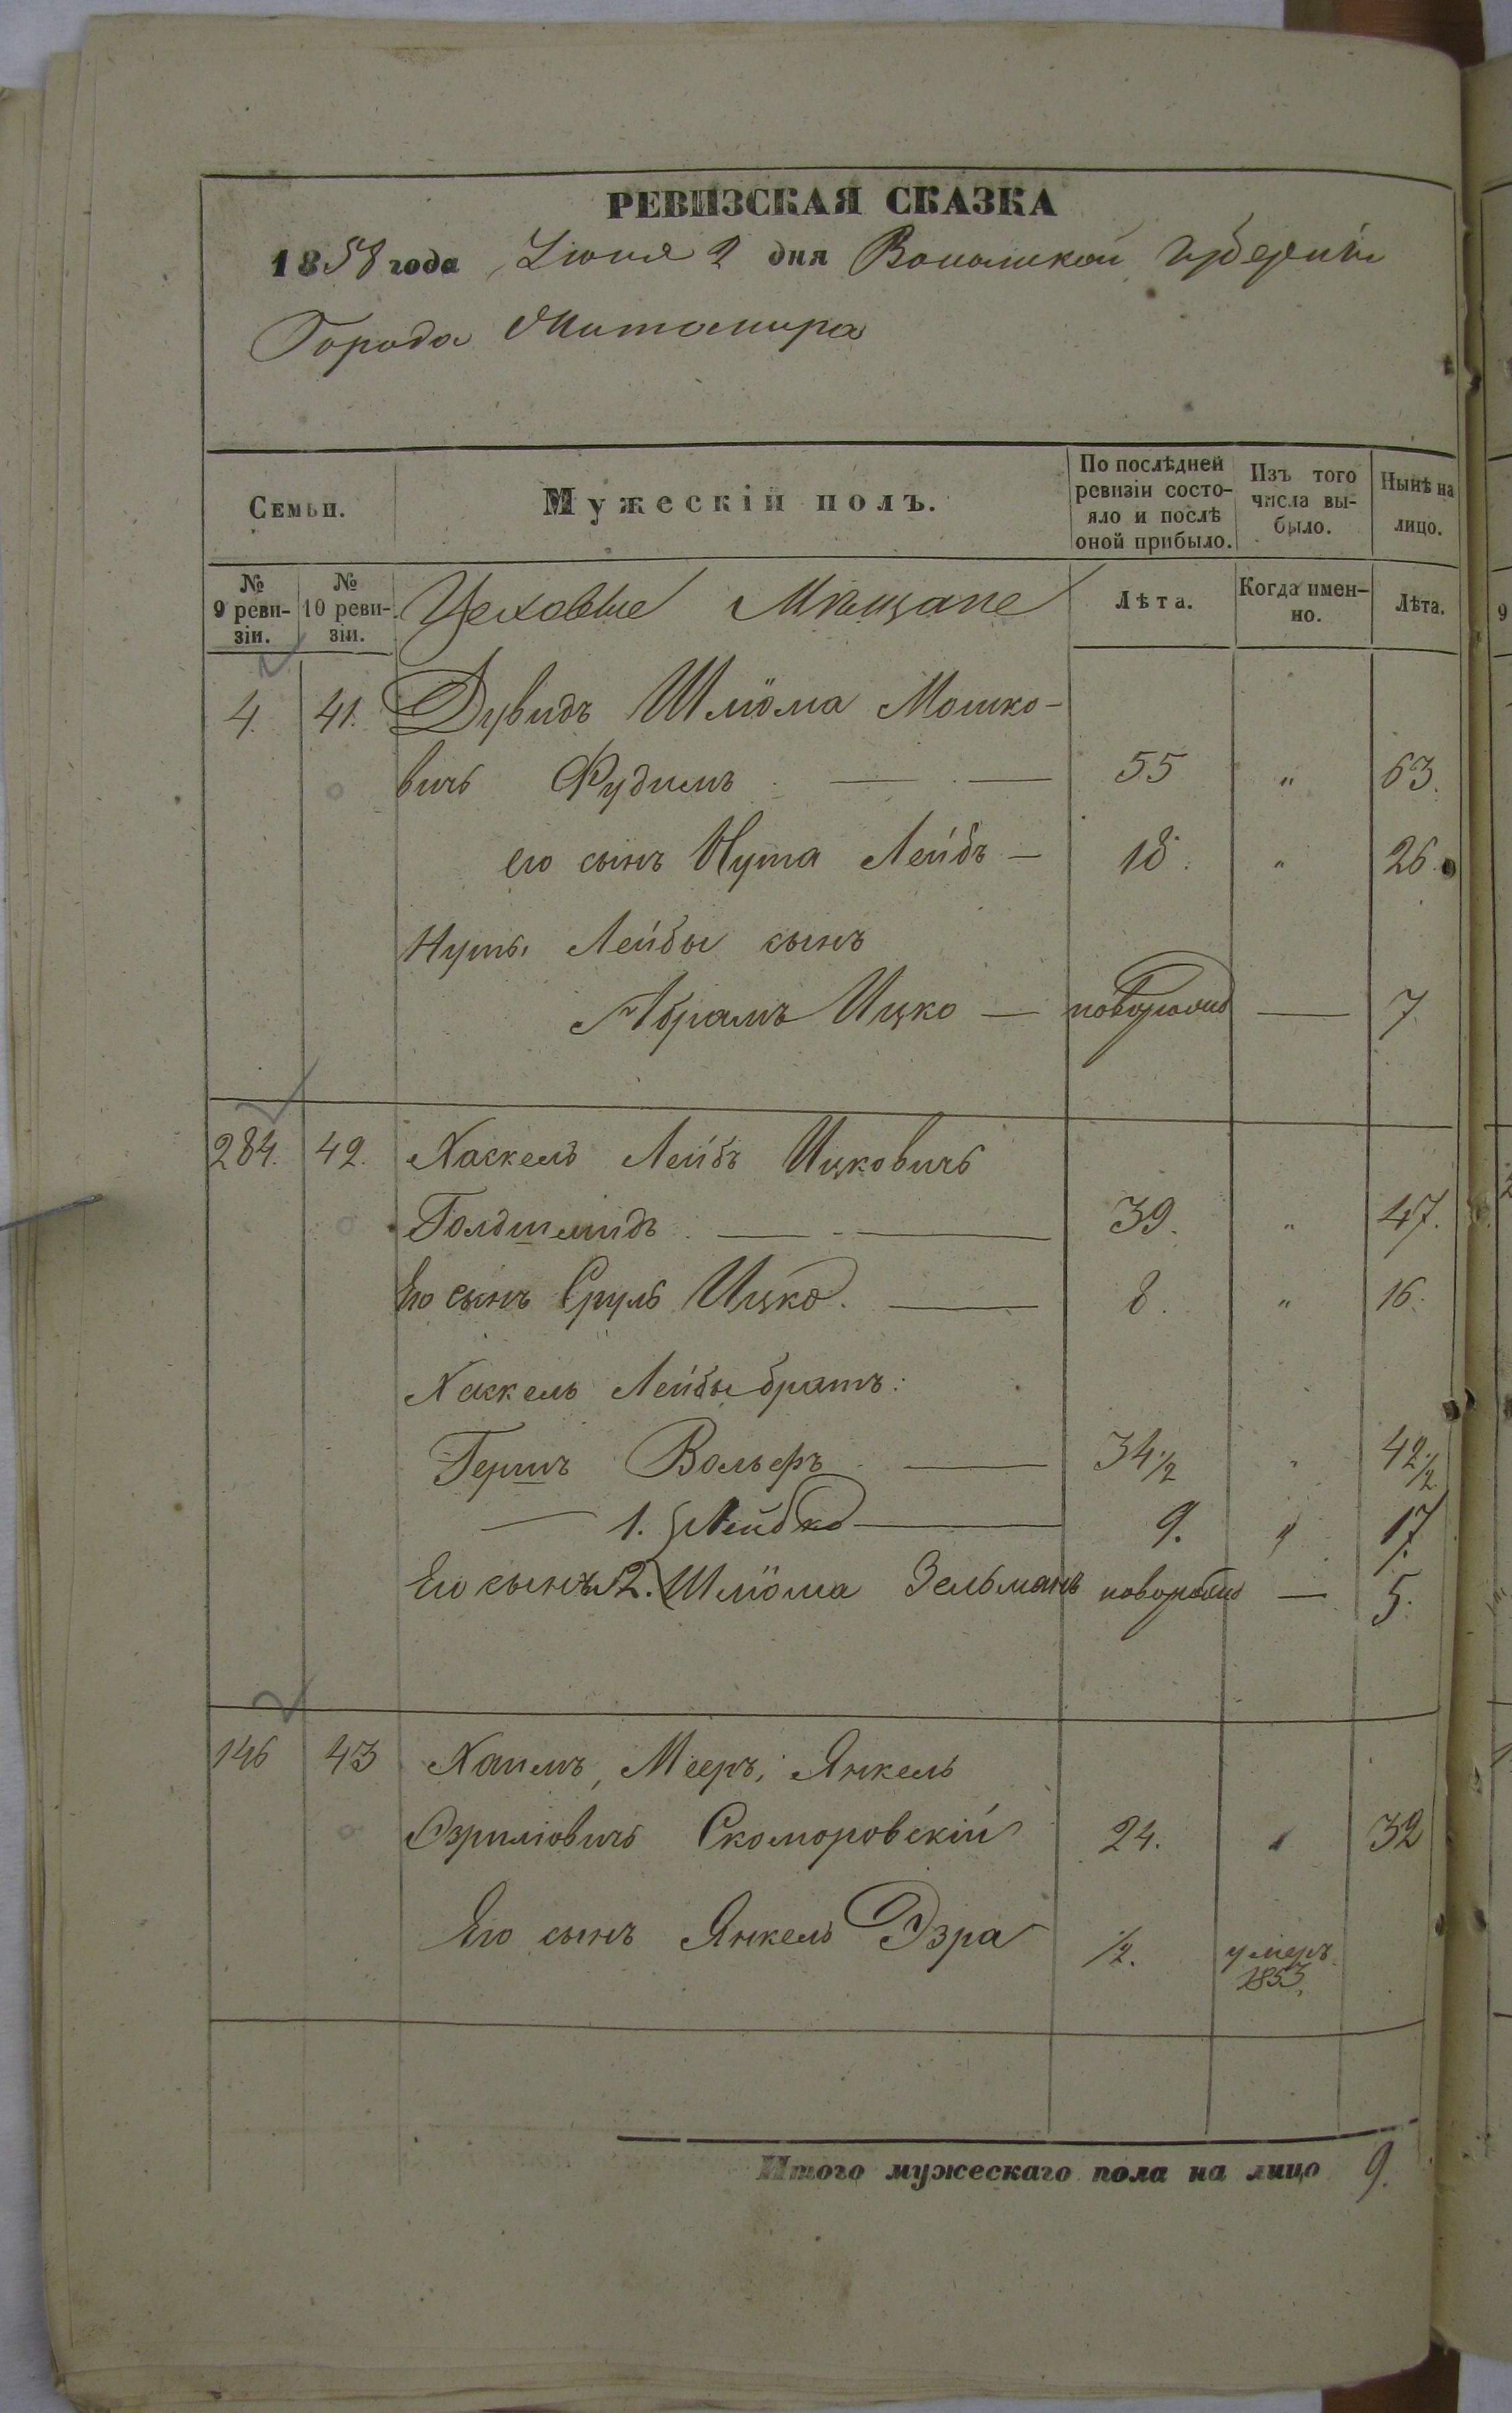 РЕВИЗСКАЯ СКАЗКА
1858 года Іюня 2 дня Волынской Губерніи
Города Житомира
Семьи.
Мужескій полъ.
По послѣдней ревизіи состо-
яло и послѣ оной прибыло.
Изъ того числа вы-
было.
Нынѣ на лицо.
№ 9 реви-
зіи.
№ 10 реви-
зіи.
Цеховые Мѣщане
Лѣта.
Когда имен-
но.
Лѣта.
4. 41. Дувидъ Шліома Мошко-
вичь Фудимъ 55 " 63.
его сынъ Нута Лейбъ — 18. " 26.
Нуты Лейбы сынъ
Абрамъ Ицко — новорожд — 7.
284. 42. Хаскель Лейбъ Ицковичь
Голдшмидъ 39. " 47.
Его сынъ Сруль Ицко. 8. " 16.
Хаскель Лейбы братъ:
Гершъ Вольфъ 34½ " 42½
1. Лейбко 9. " 17.
Его сынъ 2. Шлiома Зельманъ новорожд — 5.
146 43 Хаимъ, Мееръ, Янкель
Озриловичь Скоморовскій 24. " 32
Его сынъ Янкель Эзра ½. умеръ
1853.
Итого мужескаго пола на лицо 9.